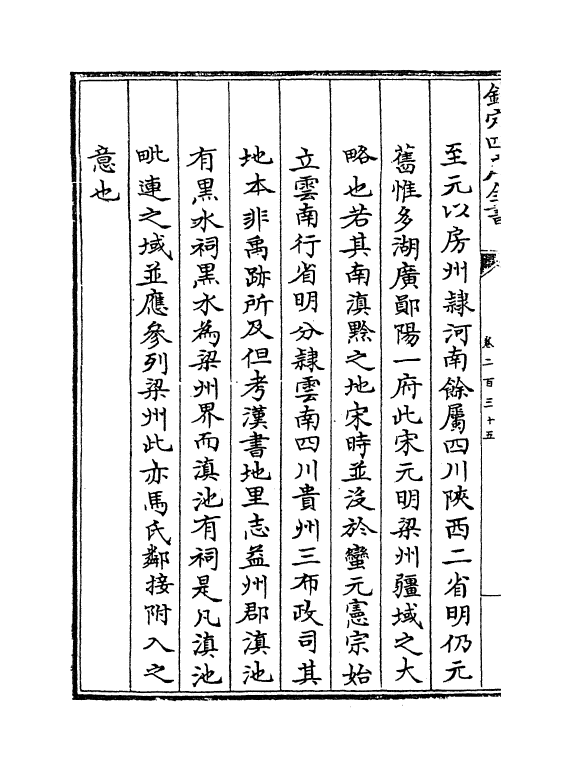 欽定四庫全書
卷二百三十五
至元以房州隸河南餘屬四川陜西二省明仍元
舊惟多湖廣鄖陽一府此宋元明梁州疆域之大
略也若其南滇黔之地宋時並沒於蠻元憲宗始
立雲南行省明分隸雲南四川貴州三布政司其
地本非禹跡所及但考漢書地里志益州郡滇池
有黑水祠黑水為梁州界而滇池有祠是凡滇池
毗連之域並應參列梁州此亦馬氏鄰接附入之
意也